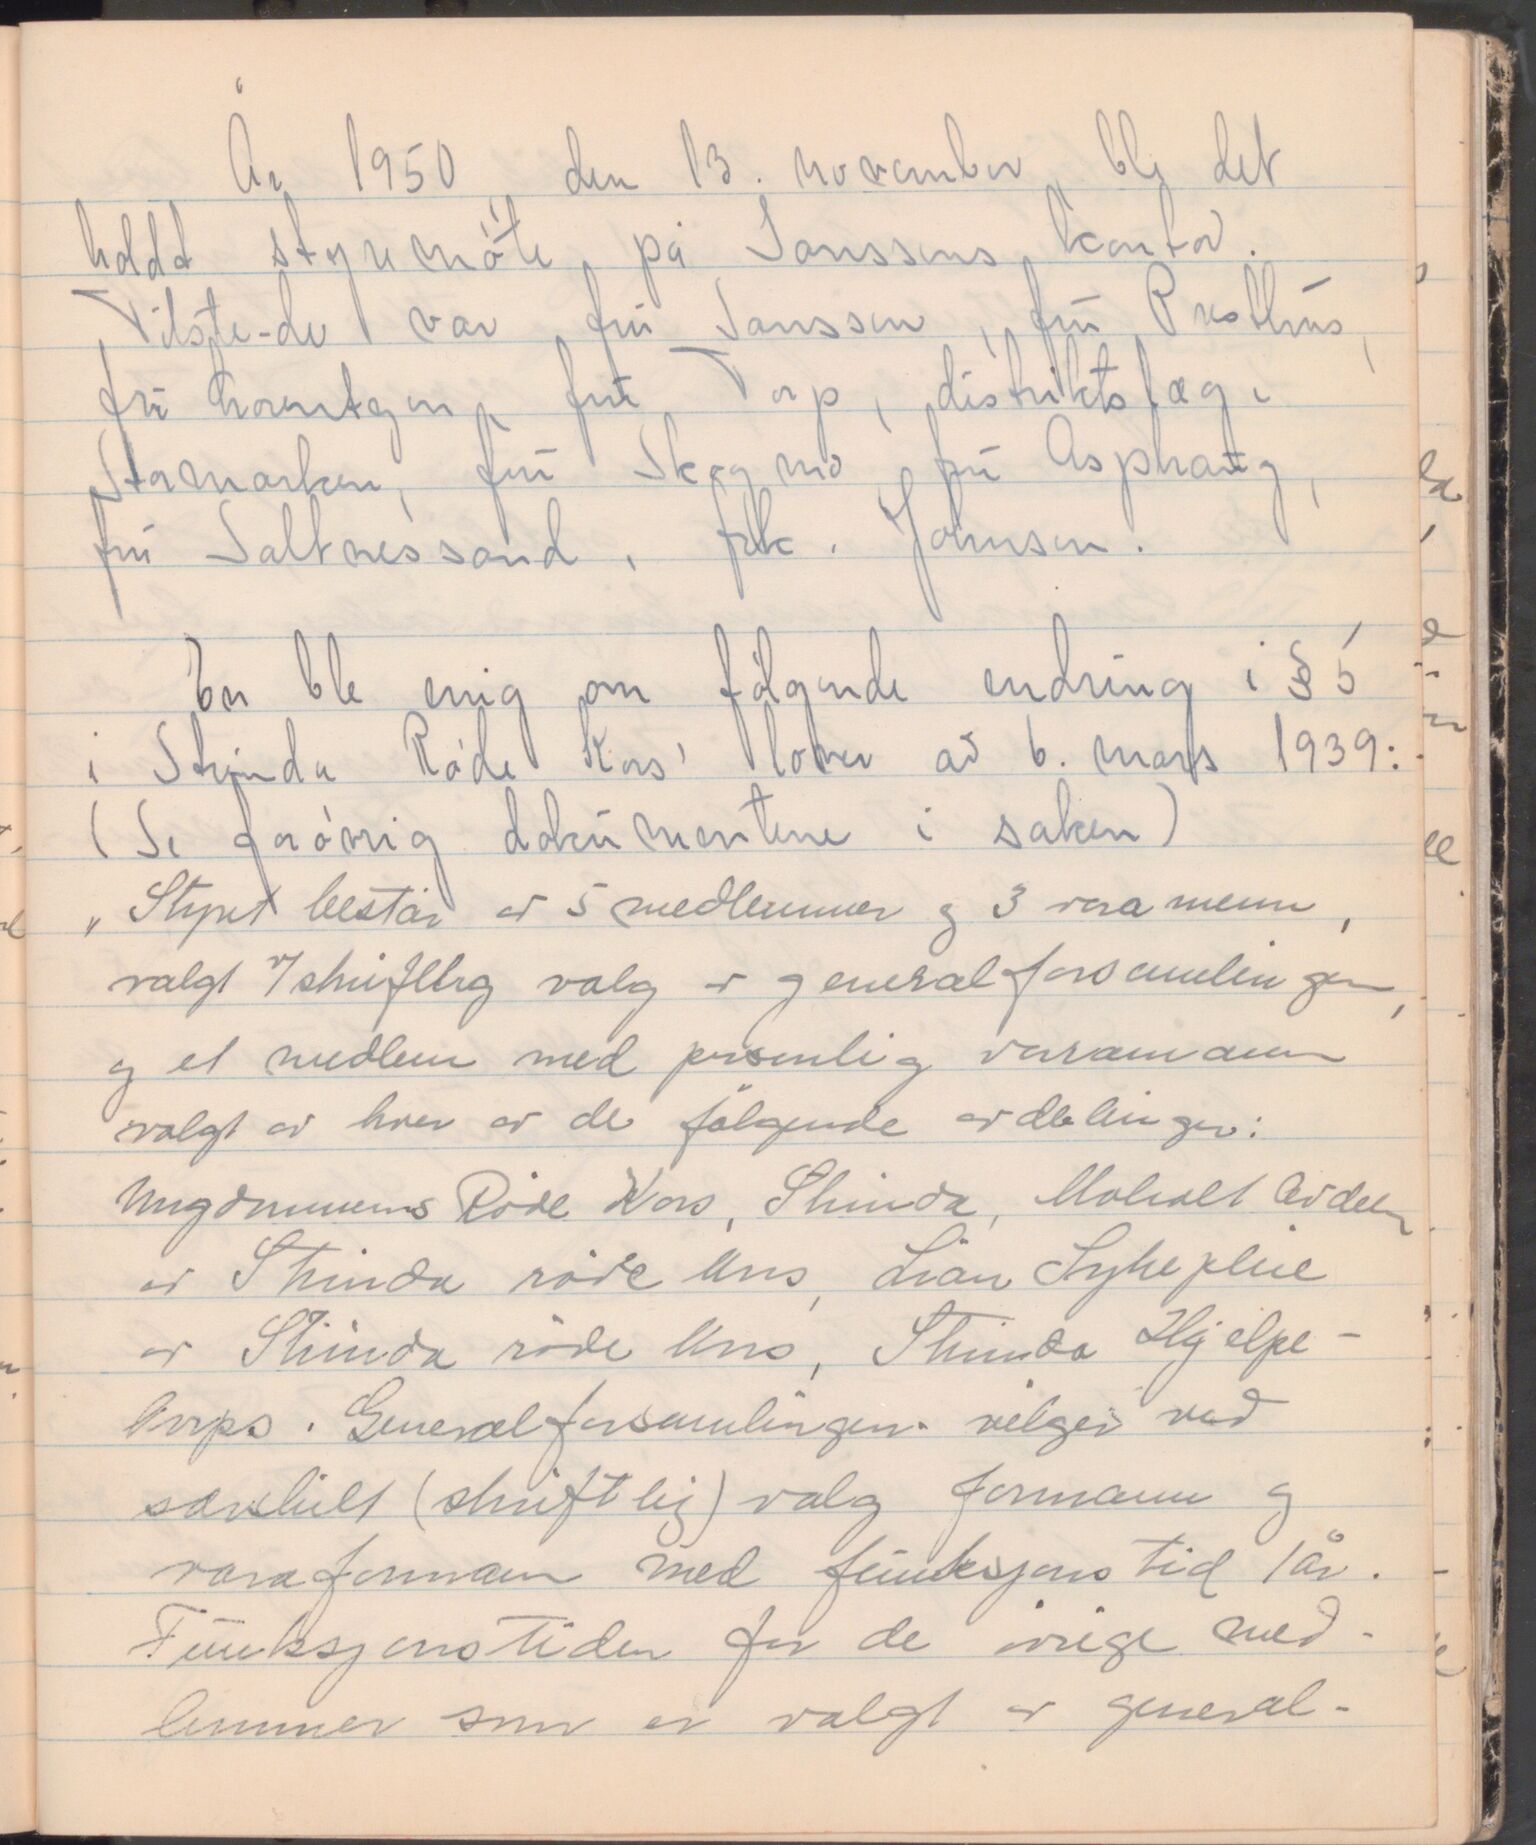 År 1950 den 13. november ble det
holdt styremöte på Janssens kontor.
Tilste-de var frü Janssen, frü Presthüs,
frü frü Torp, distriktslæge
Stormorken, frü Skogmo, frü Asphaug,
frü Saltnessand, frk. Johnsen.
En ble enig om følgende endring i § 5
i Strinda Røde Kors' lover av 6. mars 1939:
(Se forøvrig dokümentene i saken)
„Styret består av 5 medlemmer og 3 varamenn,
valgt v/ skriftlig valg av generalforsamlingen,
og et medlem med personlig varamann
valgt av hver av de følgende avdelinger:
Ungdommens Røde Kors, Strinda, Moholt Avdeling
av Strinda røde Kors, Lian Sykepleie
av Strinda røde Kors, Strinda Hjelpe-
korps. Generalforsamlingen velger ved
særskilt (skriftlig) valg formann og
varaformann med fünksjonstid 1 år.
Fünksjonstiden for de övrige med-
lemmer som er valgt av general-